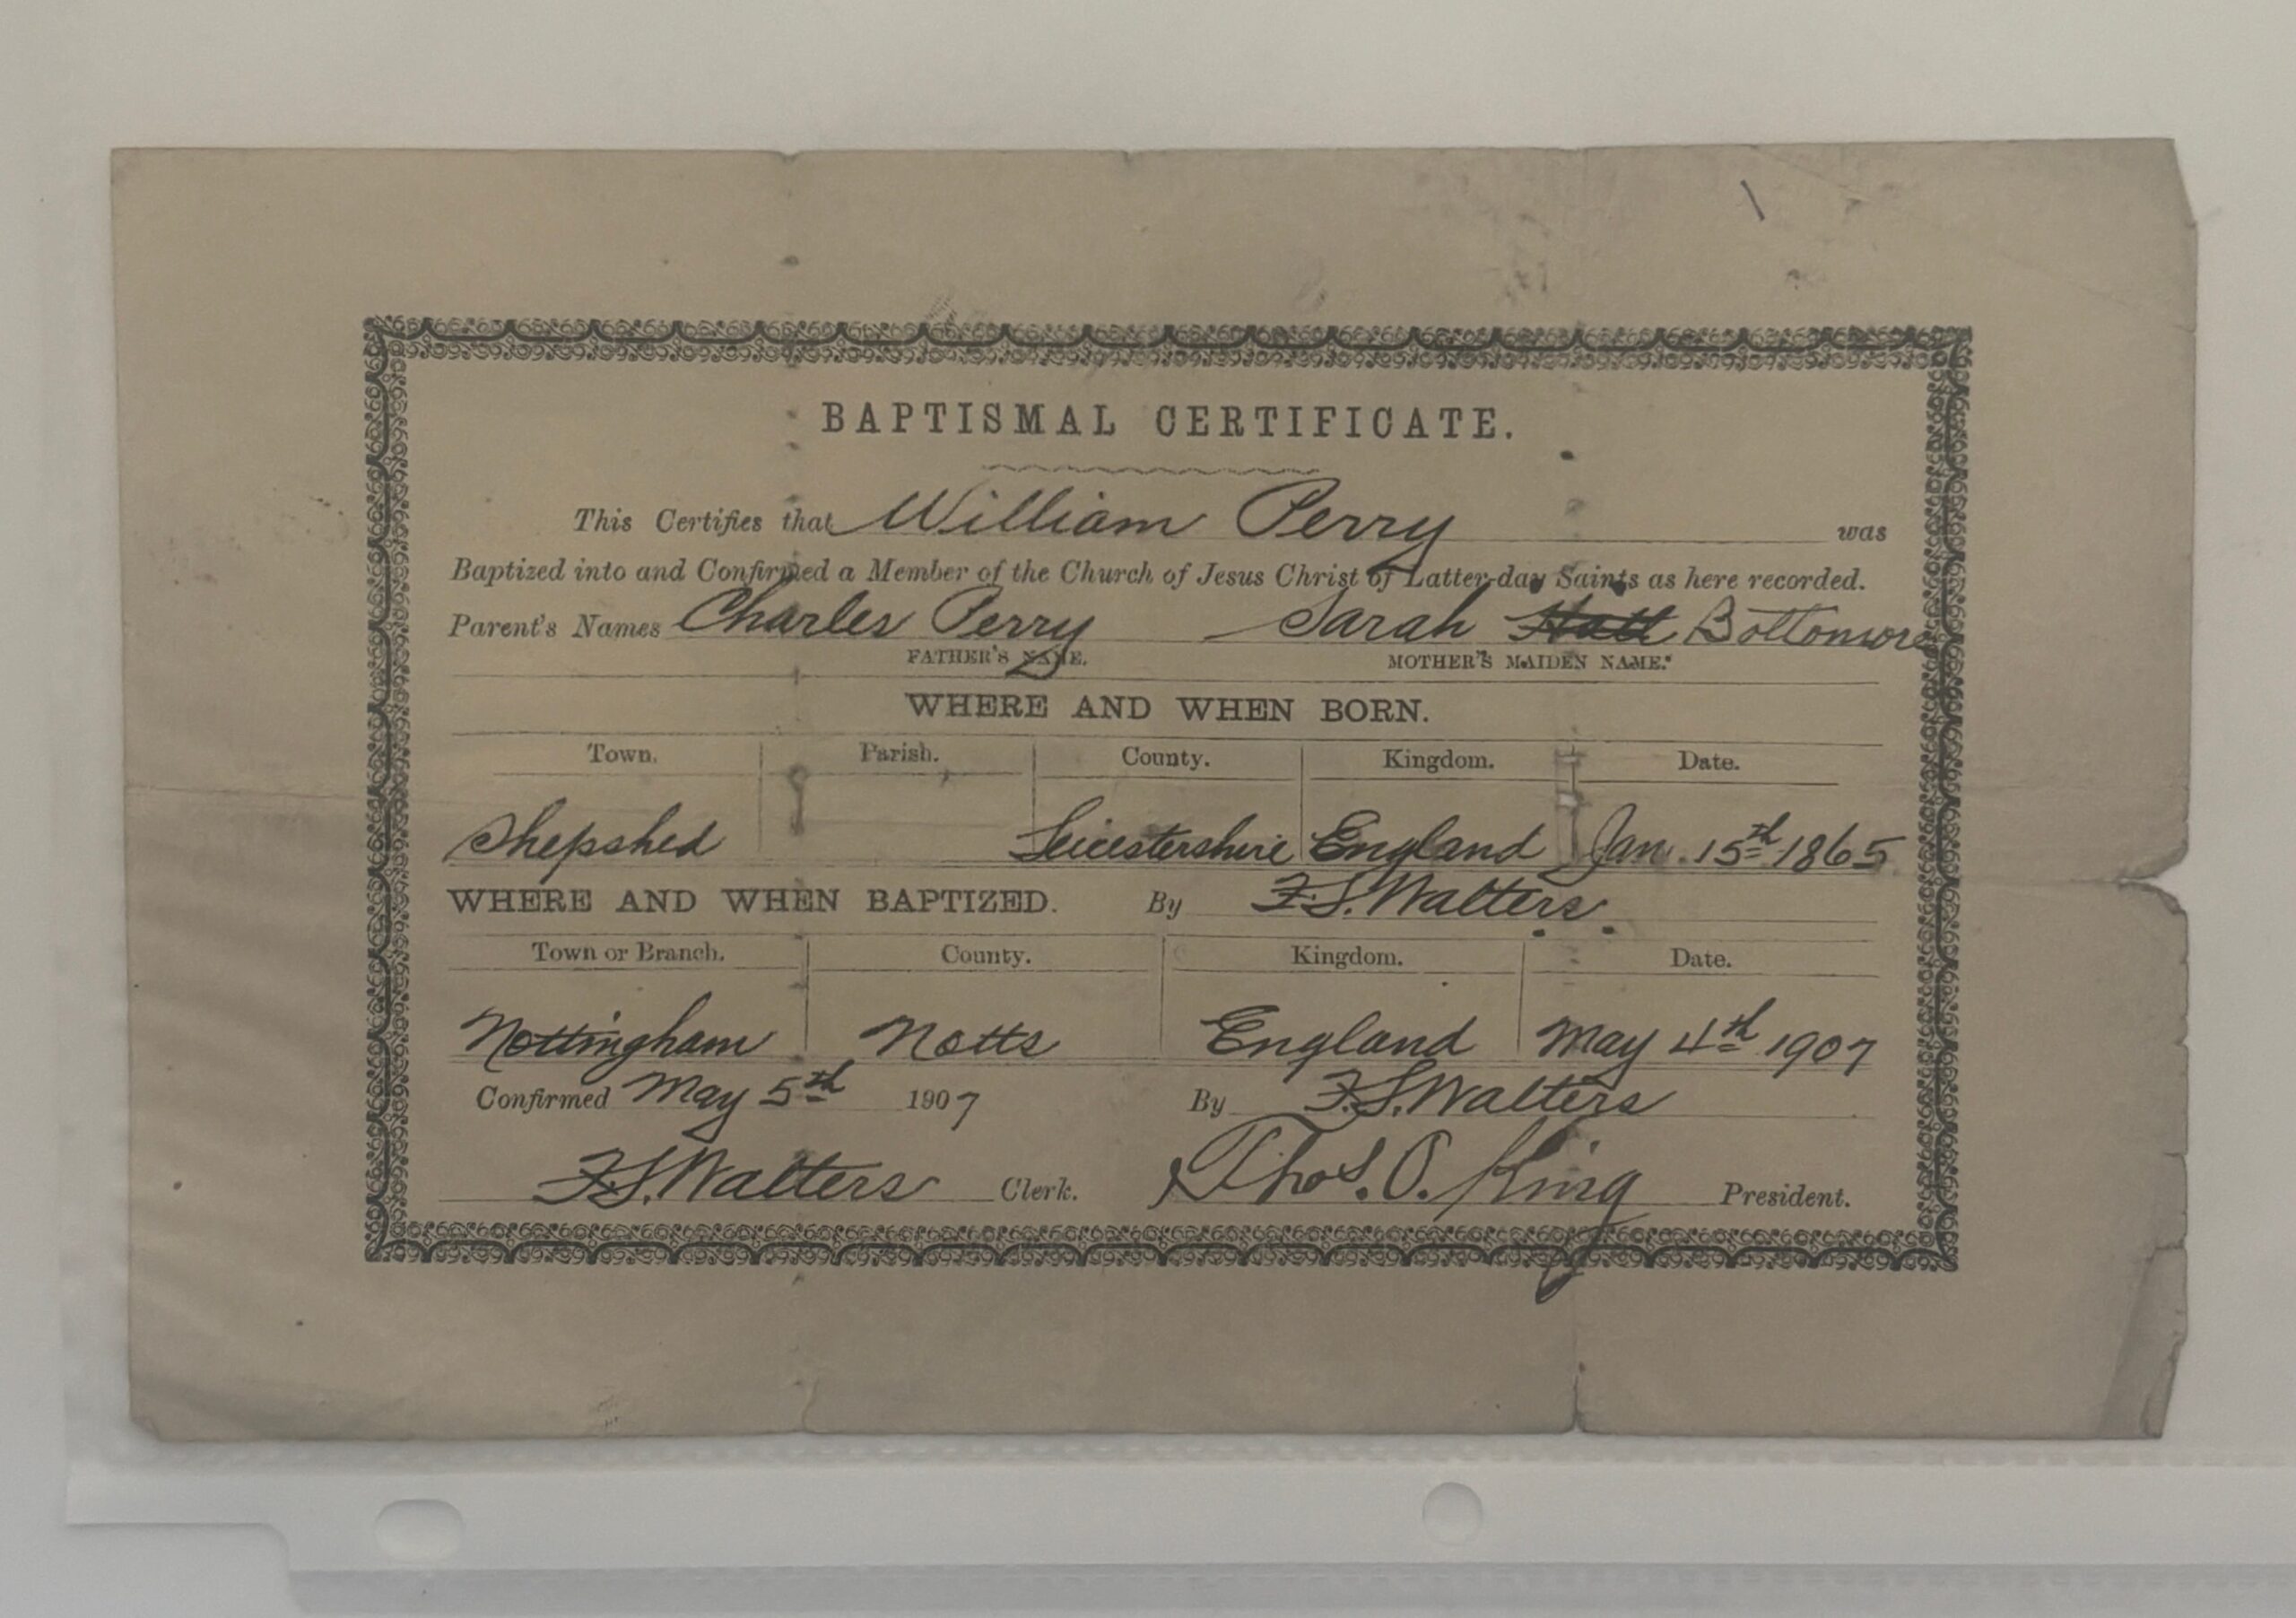 BAPTISMAL CERTIFICATE.
This Certifies that William Perry was
Baptized into and Confirmed a Member of the Church of Jesus Christ of Latter-day Saints as here recorded.
Parent's Names Charles Perry Sarah Bottomore
FATHER'S NAME. MOTHER'S MAIDEN NAME.
WHERE AND WHEN BORN.
Town. Parish. County. Kingdom. Date.
Shepshed Leicestershire England Jan. 15th 1865
WHERE AND WHEN BAPTIZED. By F.S. Walters.
Town or Branch. County. Kingdom. Date.
Nottingham Notts England May 4th 1907
Confirmed May 5th 1907 By F.S. Walters
F.S. Walters Clerk. Thos. O. King President.